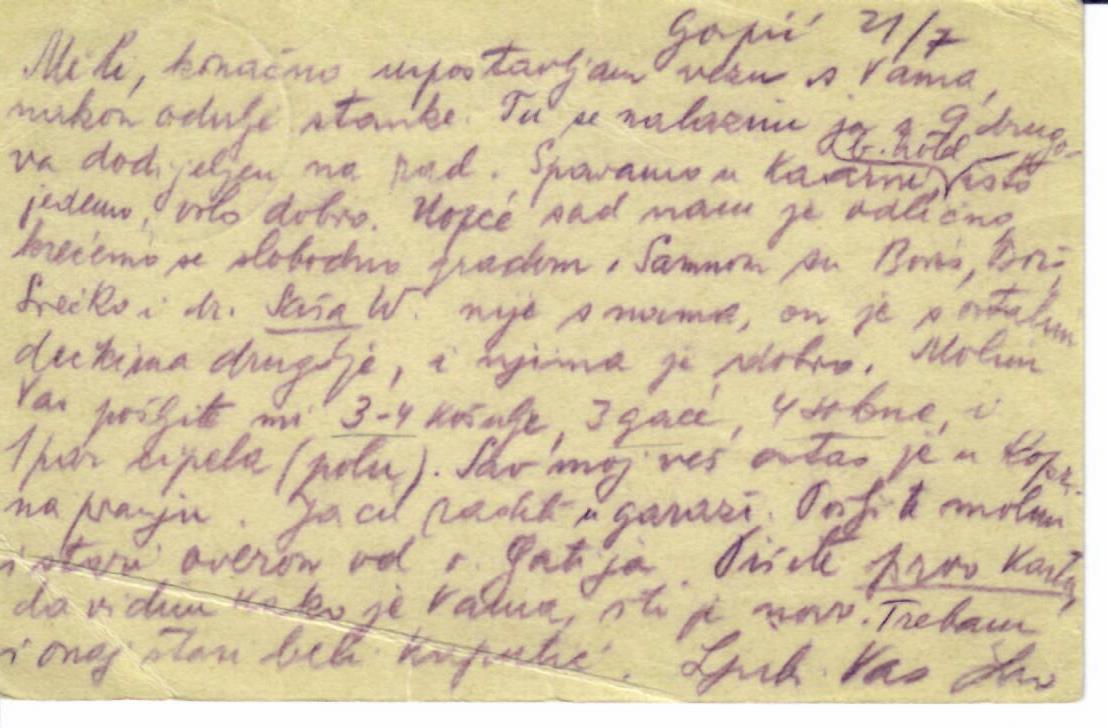 Gospić 21/7
Mili, konačno uspostavljam vezu s Vama,
nakon odulje stanke. Tu se nalazimo ja s 9 druго-
va dodijeljen na rad. Spavamo u Kasarni,
jedemo, vrlo dobro. Uopće sad nam je odlično,
krećemo se slobodno gradom. Samnom su Boris,
Srećko i dr. Saša W. nije s nama, on je s ostalim
dečkima drugdje, i njima je dobro. Molim
Vas pošljite mi 3-4 košulje, 3 gaće, i
1 par cipela (polu). Sav moj veš ostao je u Kopr.
na pranju. Ja ću raditi u garaži. Pošljite molim
i stari overon od Pišite prvo kartu,
da vidim kako je Vama, šta je novo. Trebam
i onaj stari beli kaputić. Ljub. Vas